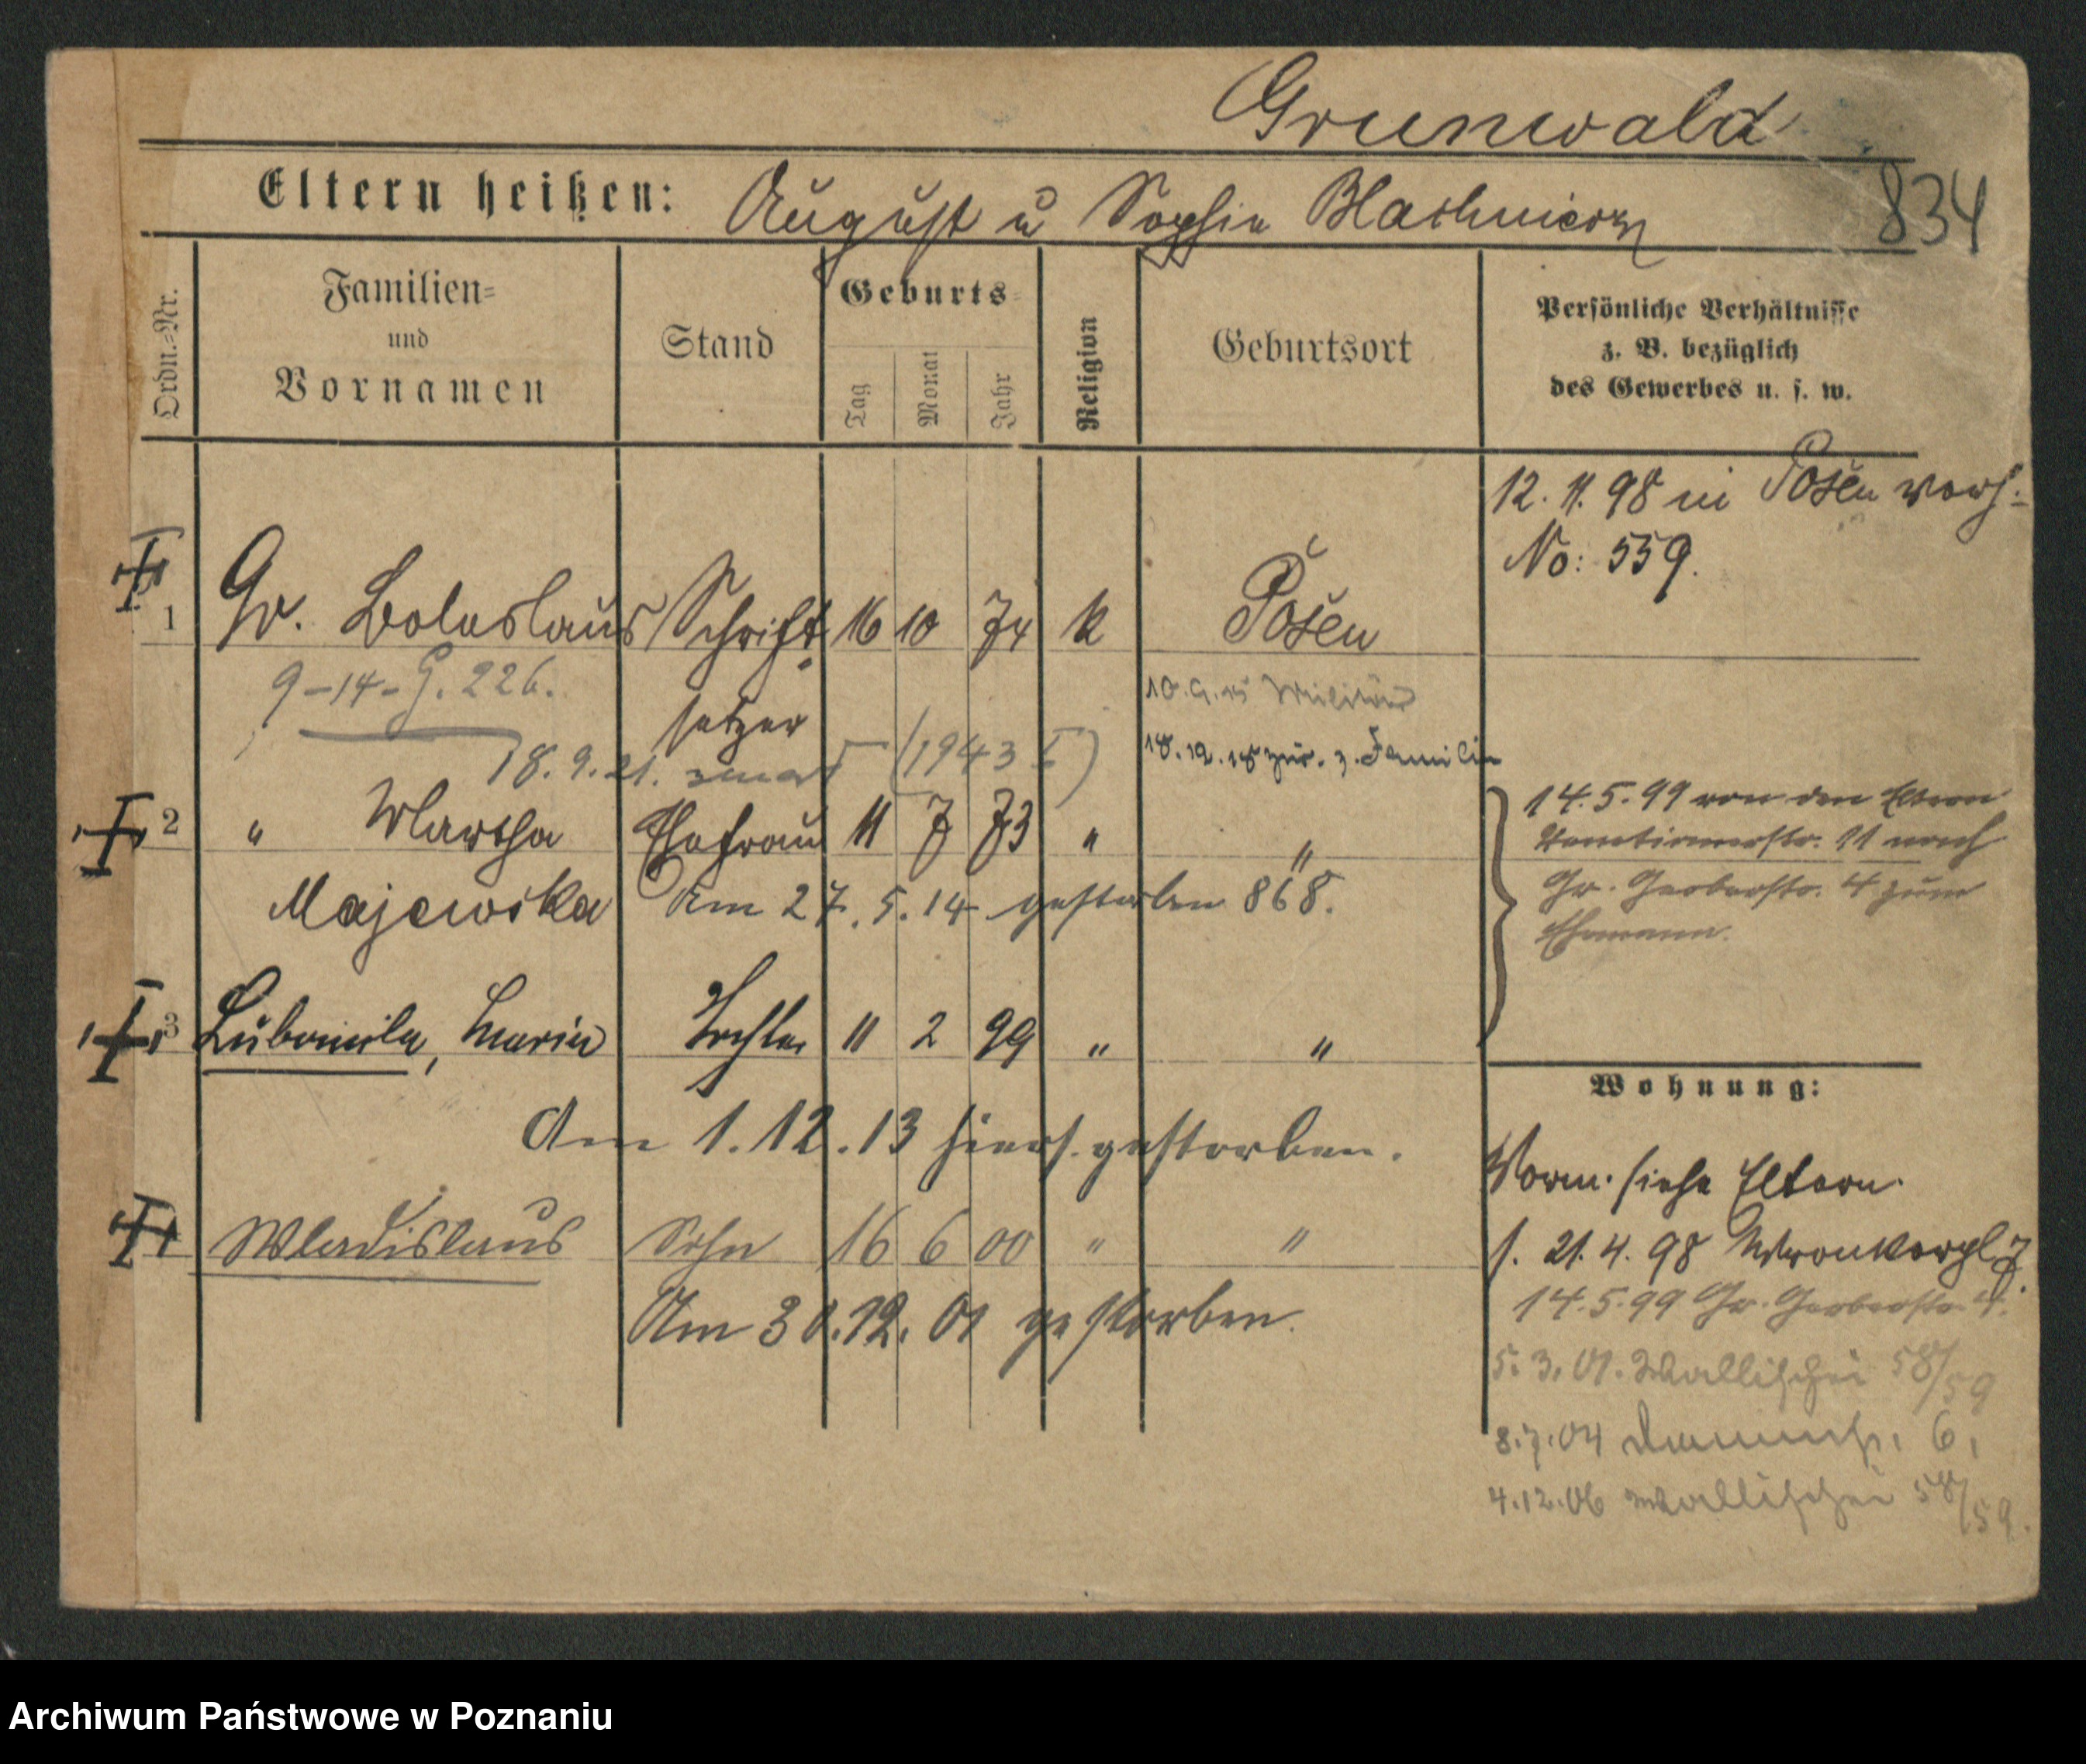 Grunwald
Eltern heißen: August u Sophie
834
Ordn.=Nr.
Familien=
und
Vornamen
Stand
Geburts=
Tag
Monat
Jahr
Religion
Geburtsort
Persönliche Verhältnisse
z. B. bezüglich
des Gewerbes u. s. w.
12. 11. 98 in Posen
No: 559.
1 Gr. Boleslaus Schrift 16 10 74 k Posen
9-14-G. 226.
setzer
10.9.15 Militär
18.9.21. zmarł (1943 I)
18.12.18 zur. z. Familie
2 " Martha Ehefrau 11 7 73 " "
Majewska Am 27.5.14 gestorben 868.
14.5.99 von den Eltern
11 nach
Gr. Gerberstr. 4 zum
Ehemann.
3 Lubomila, Maria Tochter 11 2 99 " "
Am 1.12.13 hiers. gestorben.
Wohnung:
Vorm. siehe Eltern.
Wladislaus Sohn 16 6 00 " "
Am 30.12.01 gestorben.
s. 21.4.98 Wronkerpl 7.
14.5.99 Gr. Gerberstr 4.
5.3.01. Wallischei 58/59
8.7.04 Dammstr. 6.
4.12.06 Wallischei 58/59.
Archiwum Państwowe w Poznaniu